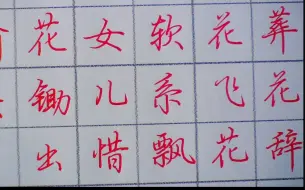 葬花辞
花飞花
软系飘
女儿惜
花锄出